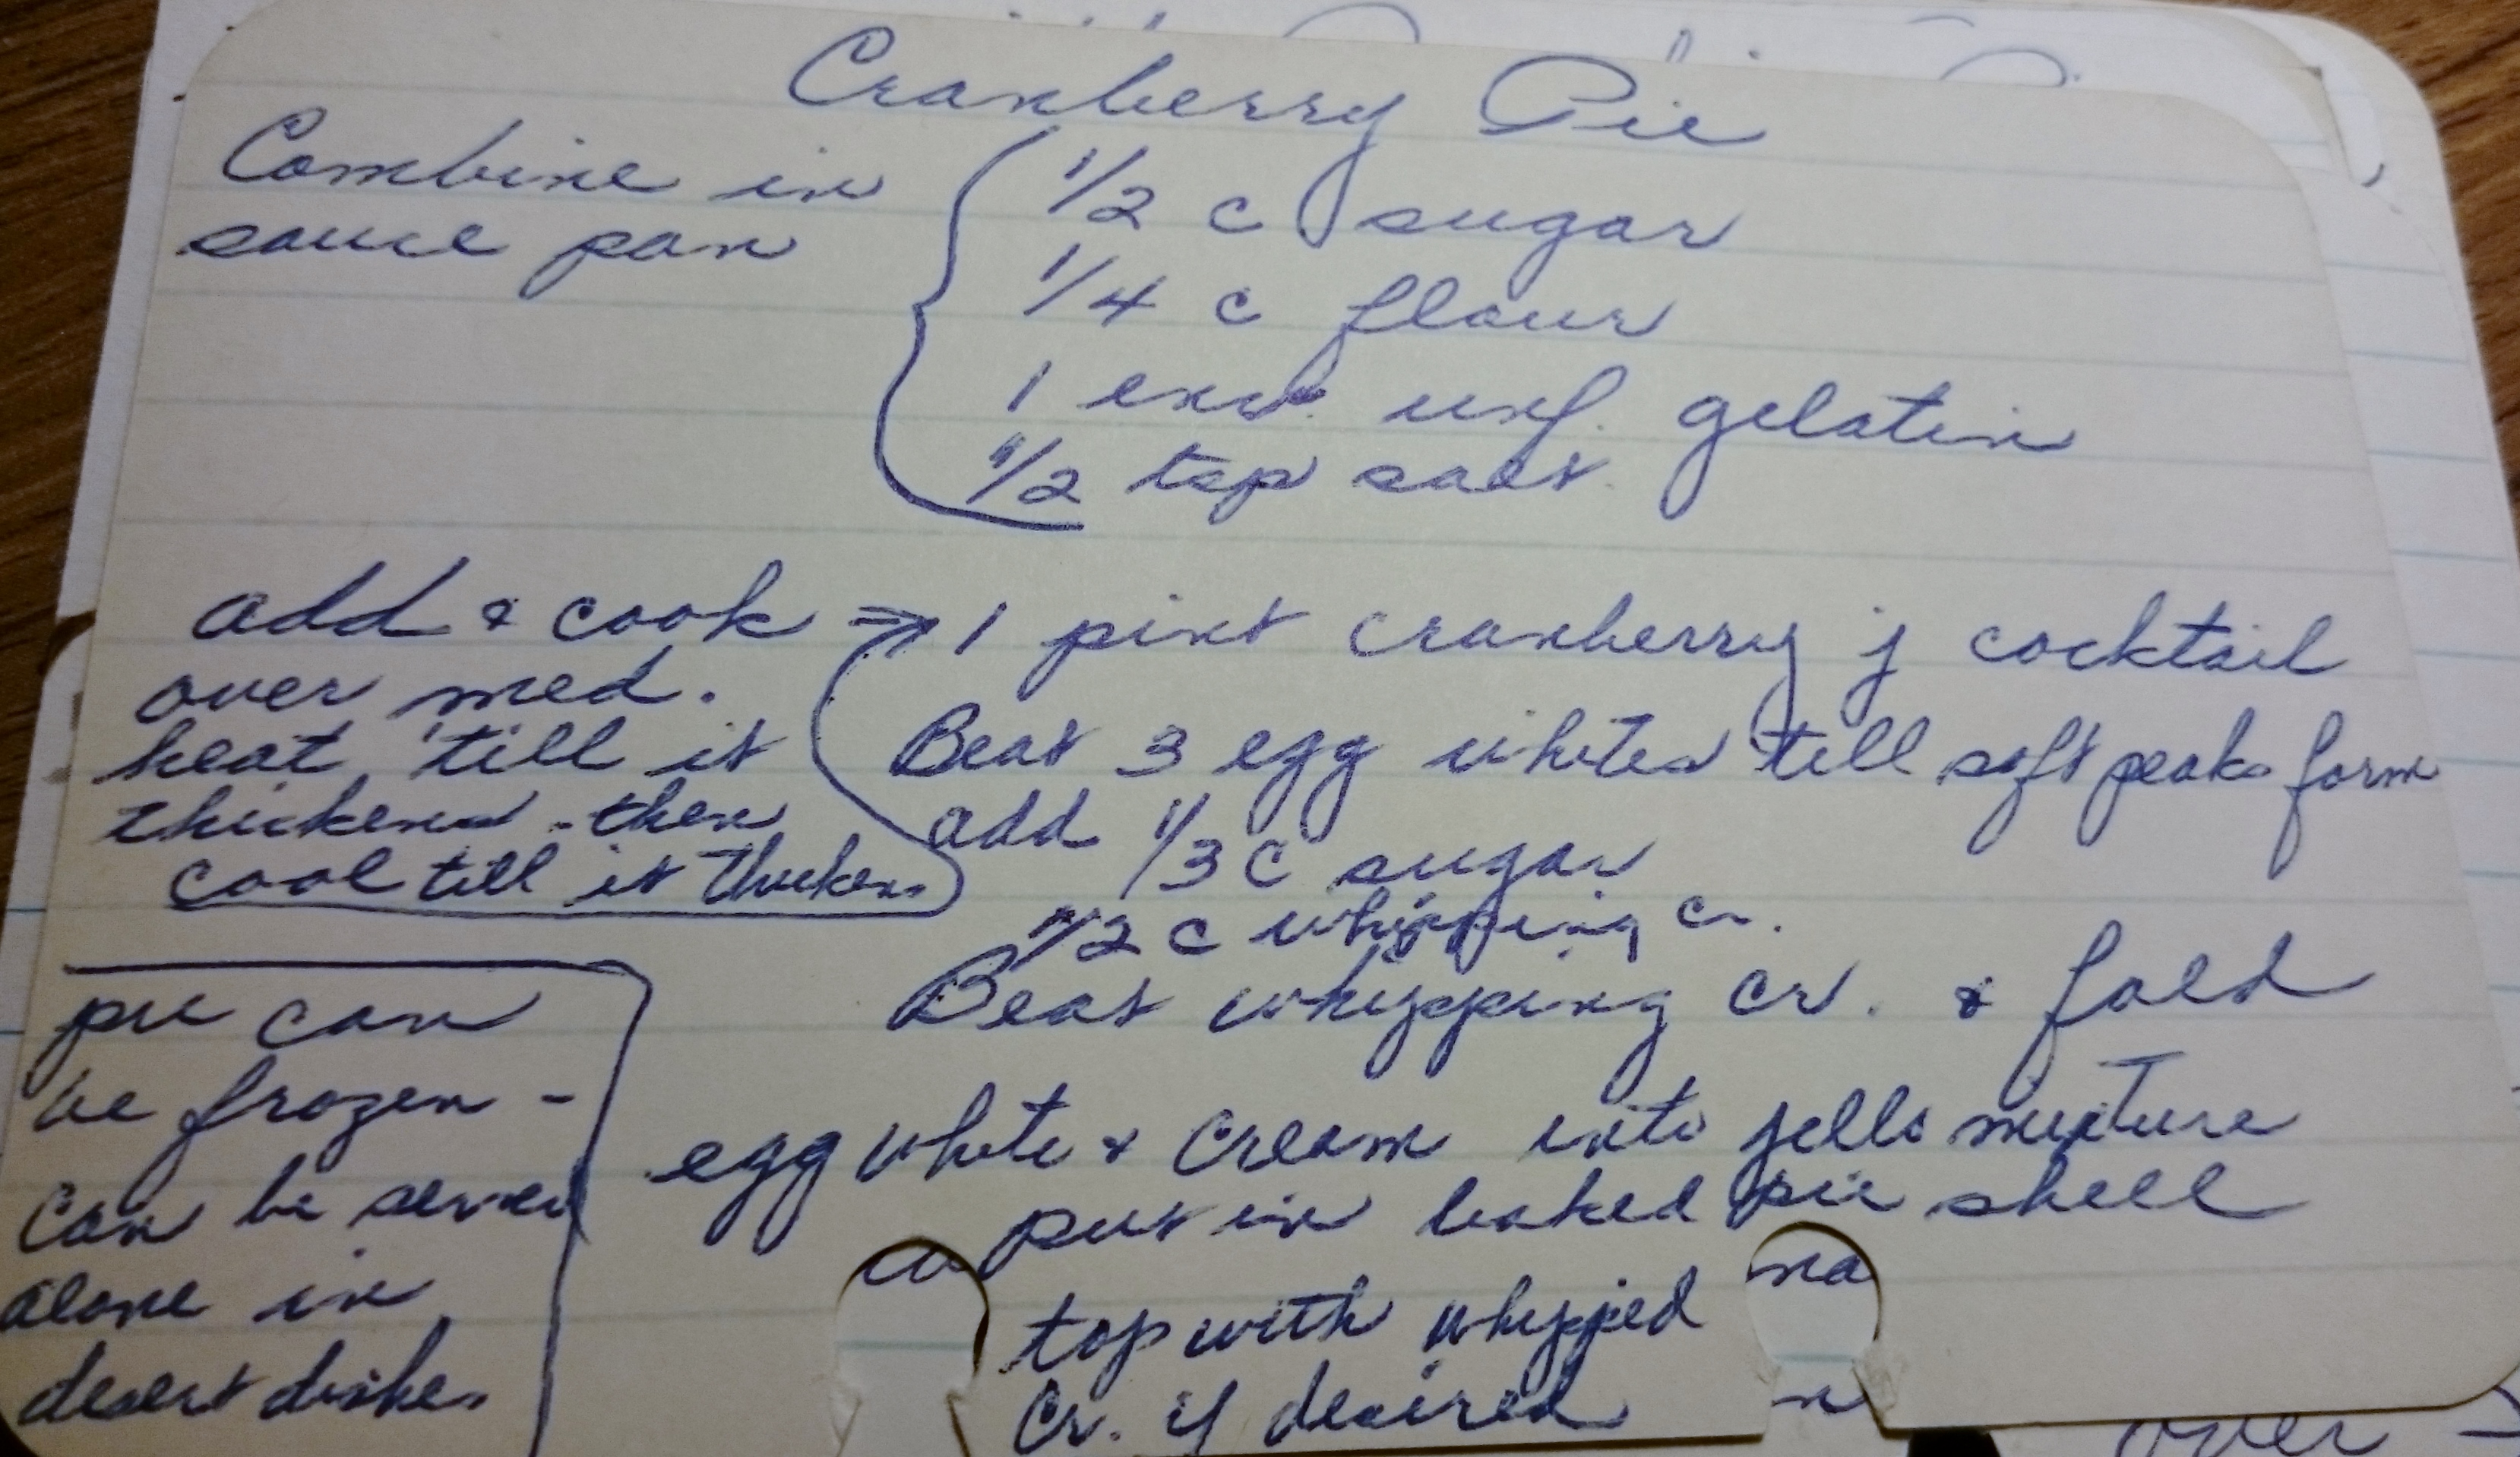 Cranberry Pie
Combine in
sauce pan
1/2 c sugar
1/4 c flour
1 env. unf. gelatin
1/2 tsp salt
add & cook
over med.
heat 'till it
thickens - then
cool till it thickens
1 pint cranberry j cocktail
Beat 3 egg whites till soft peaks form
add 1/3 c sugar
1/2 c whipping cr.
Beat whipping cr. & fold
egg white & cream into jello mixture
put in baked pie shell
top with whipped
cr. if desired
pie can
be frozen -
can be served
alone in
desert dishes
over